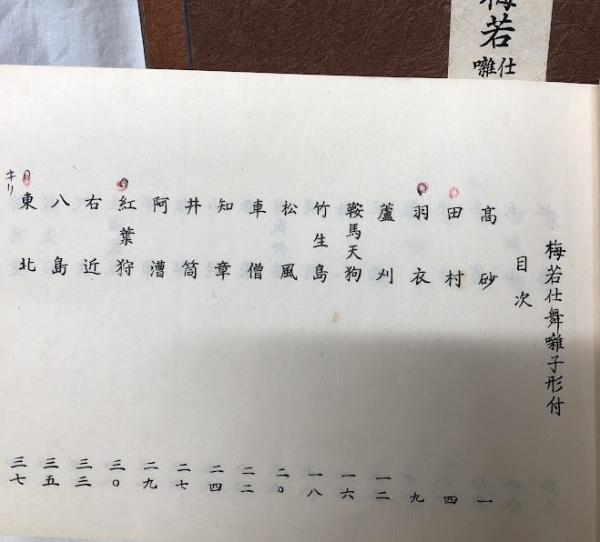 梅若
仕
囃
梅若仕舞囃子形付
目次
高砂 一
田村 四
羽衣 九
蘆刈 一二
鞍馬天狗 一六
竹生島 一八
松風 二〇
車僧 二二
知章 二四
井筒 二七
阿漕 二九
紅葉狩 三〇
右近 三三
八島 三五
東北 三七
キリ